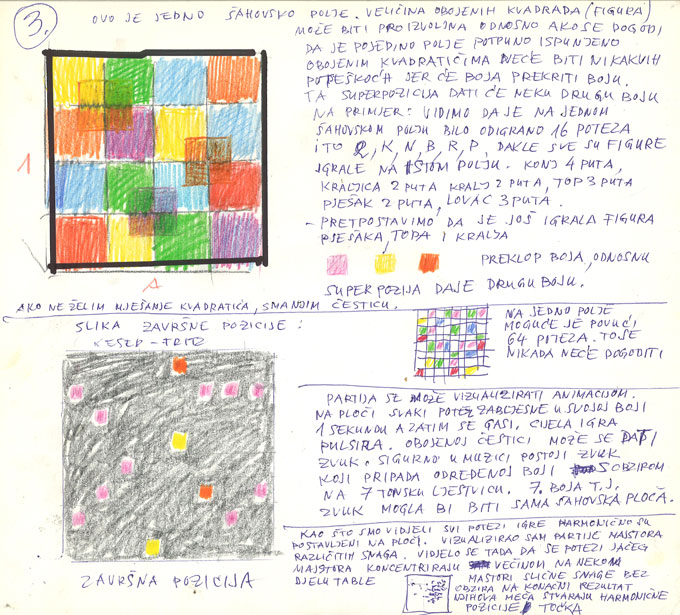 3.
OVO JE JEDNO ŠAHOVSKO POLJE. VELIČINA OBOJENIH KVADRADA (FIGURA)
MOŽE BITI PROIZVOLJNA ODNOSNO AKO SE DOGODI
DA JE POJEDINO POLJE POTPUNO ISPUNJENO
OBOJENIM KVADRATICIMA NEĆE BITI NIKAKVIH
POTEŠKOĆA JER ĆE BOJA PREKRITI BOJU.
TA SUPERPOZICIJA DATI ĆE NEKU DRUGU BOJU
NA PRIMJER: VIDIMO DA JE NA JEDNOM
ŠAHOVSKOM POLJU BILO ODIGRANO 16 POTEZA
I TO Q, K, N, B, R, P, DAKLE SVE SU FIGURE
IGRALE NA ISTOM POLJU. KONJ 4 PUTA,
KRALJICA 2 PUTA KRALJ 2 PUTA, TOP 3 PUTA
PJEŠAK 2 PUTA, LOVAC 3 PUTA.
- PRETPOSTAVIMO DA JE JOŠ IGRALA FIGURA
PJEŠAKA, TOPA I KRALJA
PREKLOP BOJA, ODNOSNO
SUPERPOZIJA DAJE DRUGU BOJU.
1
A
AKO NE ŽELIM MJEŠANJE KVADRATIĆA, SMANJIM ČESTICU.
SLIKA ZAVRŠNE POZICIJE:
NA JEDNO POLJE
MOGUĆE JE POVUĆI
64 POTEZA. TO SE
NIKADA NEĆE DOGODITI
PARTIJA SE MOŽE VIZUALIZIRATI ANIMACIJOM.
NA PLOČI SVAKI POTEZ ZABLJESNE U SVOJOJ BOJI
1 SEKUNDU A ZATIM SE GASI, CIJELA IGRA
PULSIRA. OBOJENOJ ČESTICI MOŽE SE DATI
ZVUK. SIGURNO U MUZICI POSTOJI ZVUK
KOJI PRIPADA ODREĐENOJ BOJI S OBZIROM
NA 7 TONSKU LJESTVICU. 7. BOJA T.J.
ZVUK MOGLA BI BITI SAMA ŠAHOVSKA PLOČA.
ZAVRŠNA POZICIJA
KAO ŠTO SMO VIDJELI SVI POTEZI IGRE HARMONIČNO SU
POSTAVLJENI NA PLOČI. VIZUALIZIRAO SAM PARTIJE MAJSTORA
RAZLIČITIH SNAGA. VIDJELO SE TADA DA SE POTEZI JAČEG
MAJSTORA KONCENTRIRAJU VEĆINOM NA NEKOM
DJELU TABLE
MAJSTORI SLIČNE SNAGE BEZ
OBZIRA NA KONAČNI REZULTAT
NJIHOVA MEČA STVARAJU HARMONIČNE
POZICIJE
TOČKA